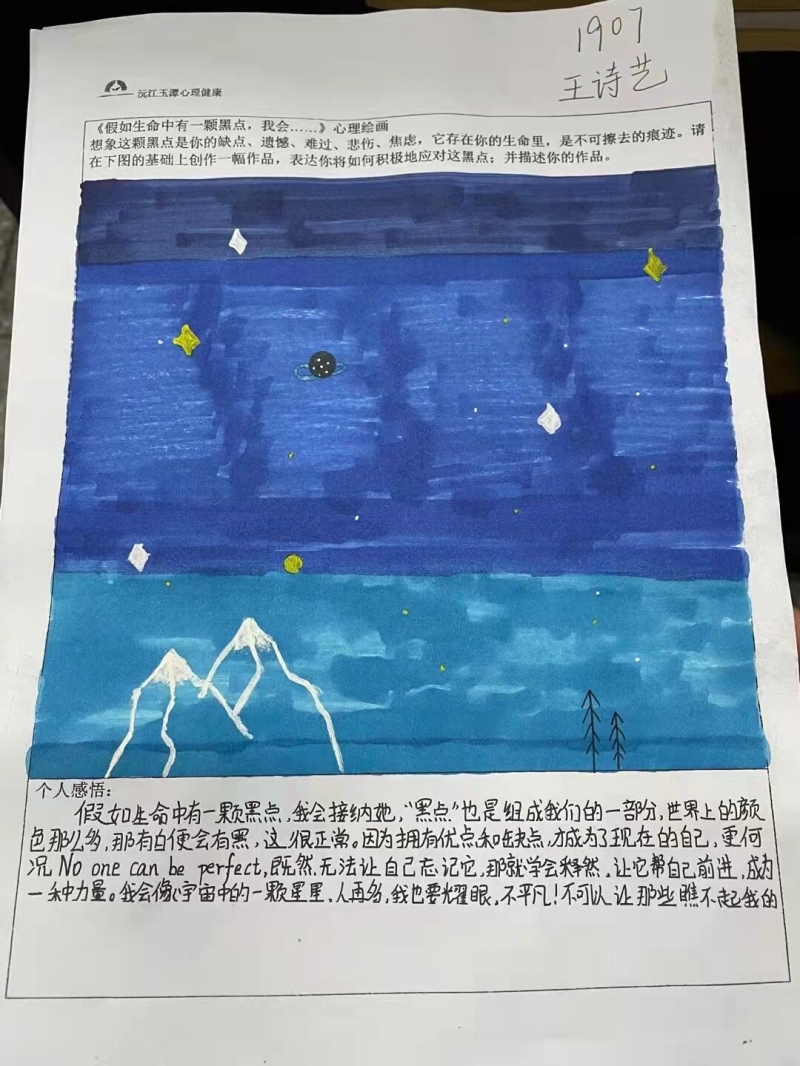 1907
王诗艺
沅江玉潭心理健康
《假如生命中有一颗黑点，我会……》心理绘画
想象这颗黑点是你的缺点、遗憾、难过、悲伤、焦虑，它存在你的生命里，是不可擦去的痕迹。请
在下图的基础上创作一幅作品，表达你将如何积极地应对这黑点；并描述你的作品。
个人感悟：
假如生命中有一颗黑点，我会接纳她，“黑点”也是组成我们的一部分，世界上的颜
色那么多，那有白便会有黑，这很正常。因为拥有优点和缺点，才成为了现在的自己，更何
况 No one can be perfect，既然无法让自己忘记它，那就学会释然，让它帮自己前进，成为
一种力量。我会像宇宙中的一颗星星，人再多，我也要耀眼，不平凡！不可以让那些瞧不起我的